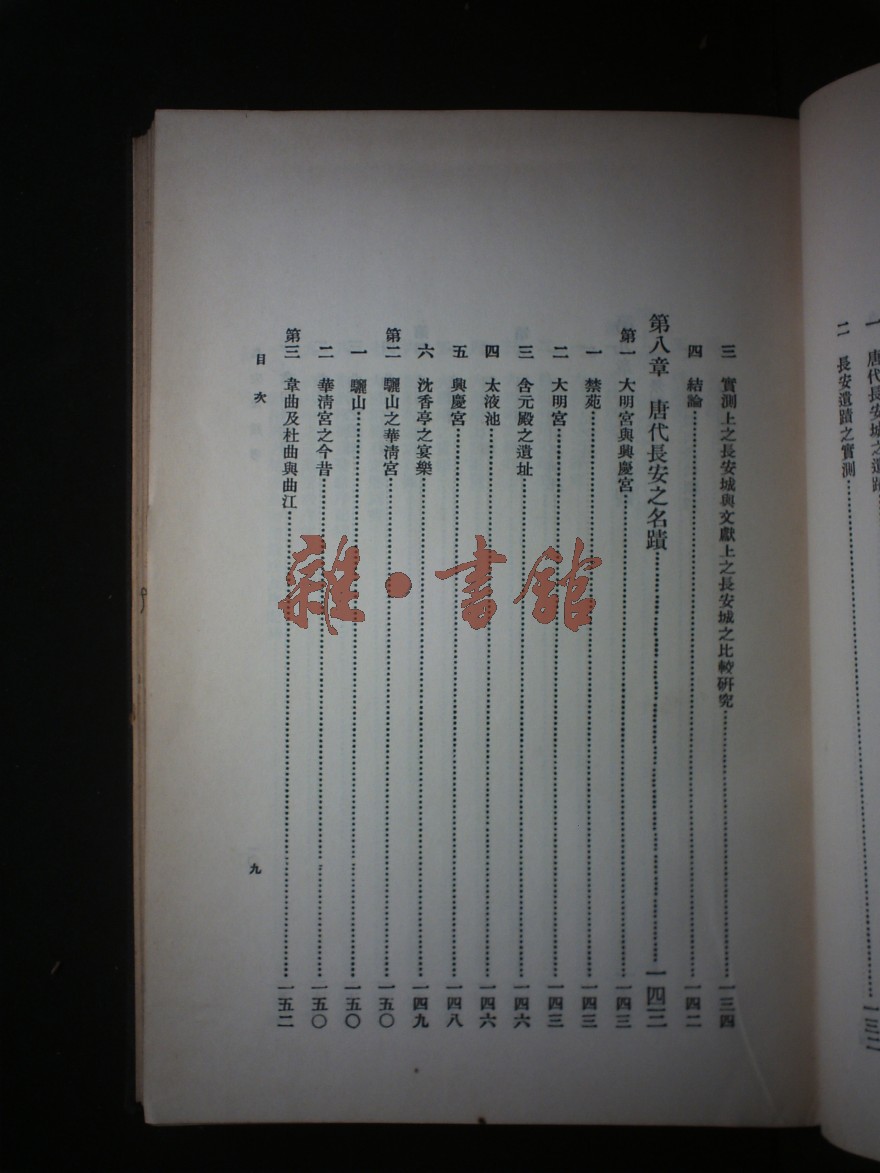 一　唐代長安城之遺蹟……一三二
二　長安遺蹟之實測
三　實測上之長安城與文獻上之長安城之比較研究……一三四
四　結論……一四二
第八章　唐代長安之名蹟……一四二
第一　大明宮與興慶宮……一四三
一　禁苑……一四三
二　大明宮……一四三
三　含元殿之遺址……一四六
四　太液池……一四六
五　興慶宮……一四八
六　沈香亭之宴樂……一四九
第二　驪山之華清宮……一五〇
一　驪山……一五〇
二　華清宮之今昔……一五〇
第三　韋曲及杜曲與曲江……一五二
目次
九
雜・書館